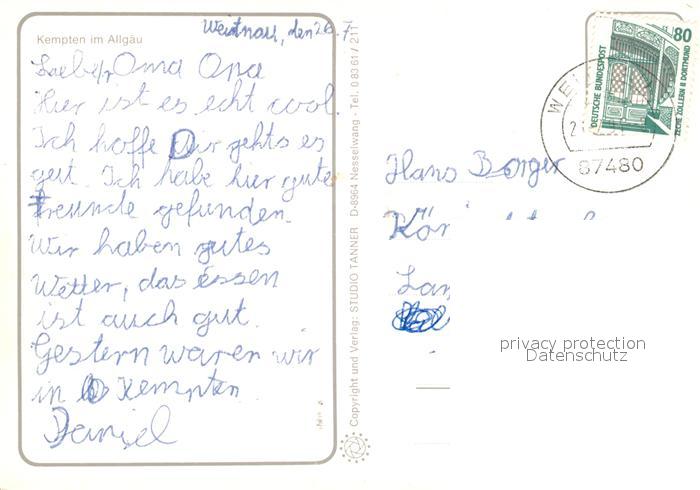 Weitnau, den 26.7.
Kempten im Allgäu
Liebe Oma Opa
Hier ist es echt cool.
Ich hoffe Dir gehts es
gut. Ich habe hier gute
freunde gefunden.
Wir haben gutes
Wetter, das essen
ist auch gut.
Gestern waren wir
in Kempten
Daniel
Copyright und Verlag: STUDIO TANNER D-8964 Nesselwang - Tel. 0 83 61 / 211
80
DEUTSCHE BUNDESPOST
ZECHE ZOLLERN II DORTMUND
87480
Hans
privacy protection
Datenschutz